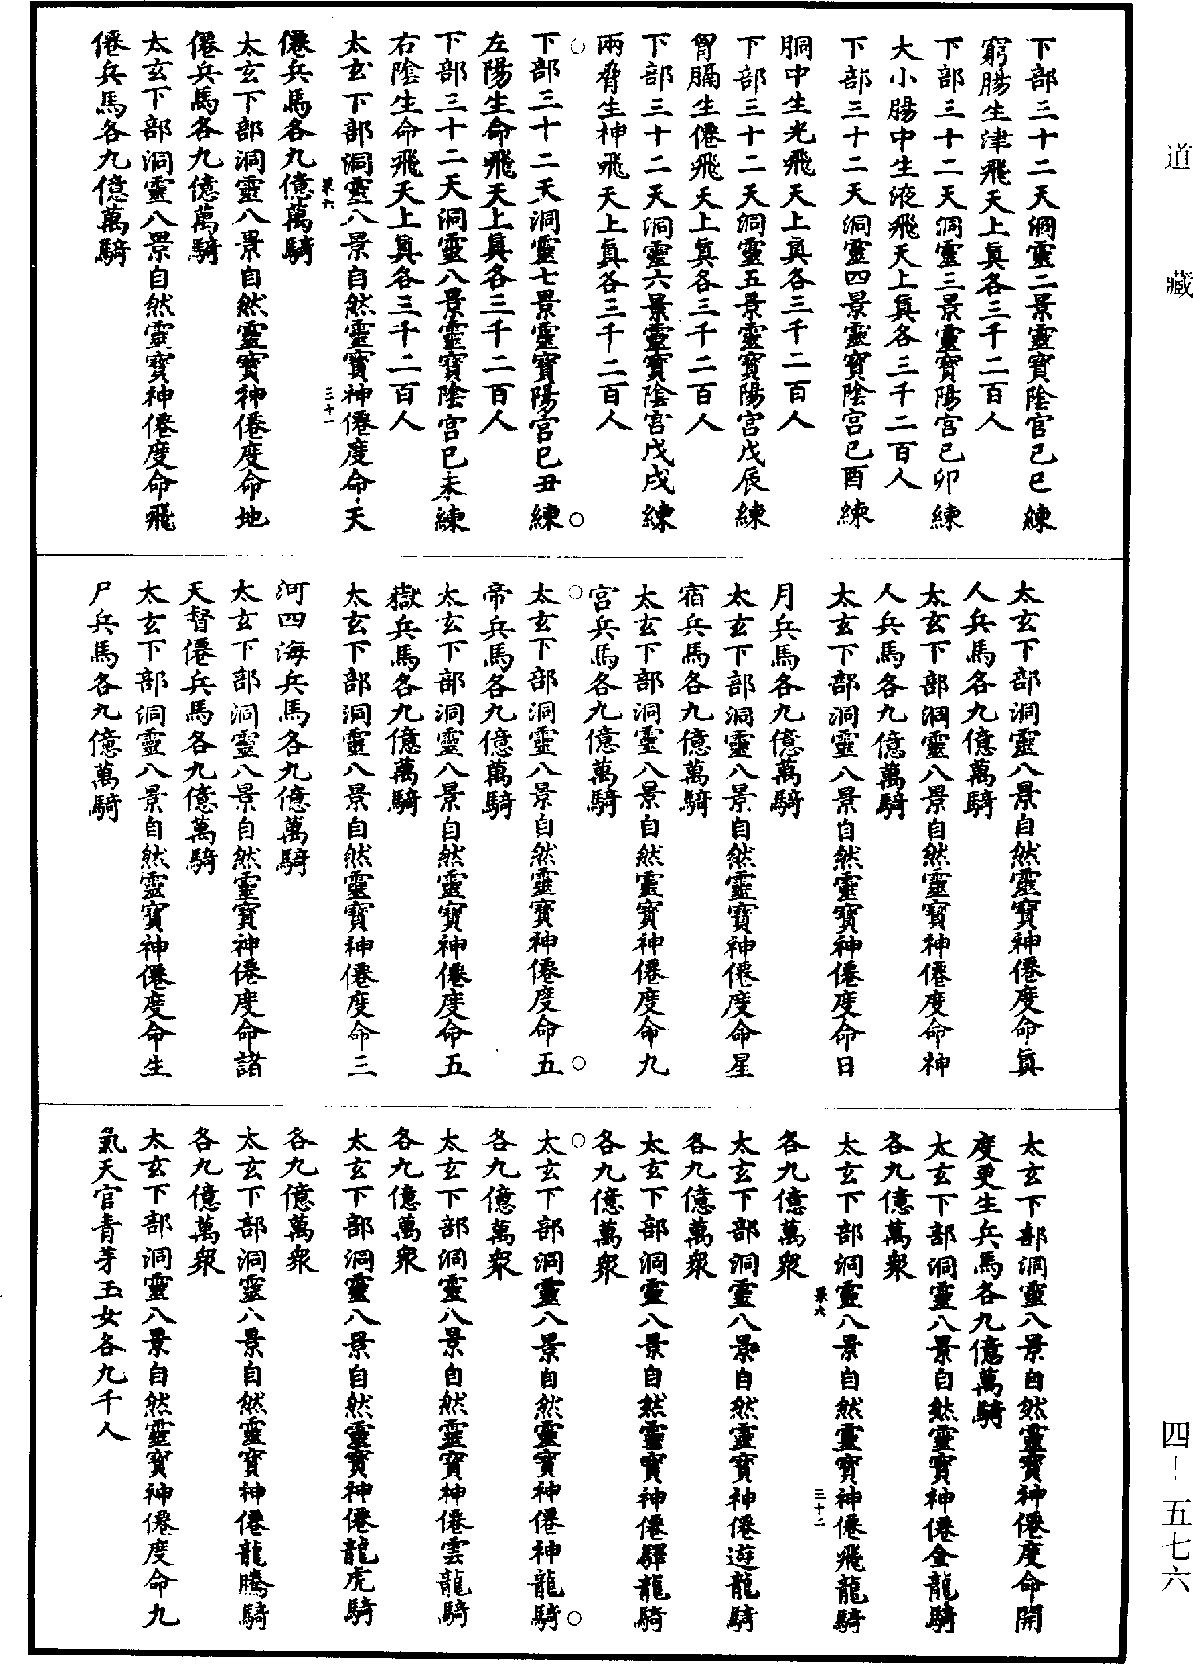 道藏
四-五七六
下部三十二天洞靈二景靈寶陰官己巳練
窮腸生津飛天上真各三千二百人
下部三十二天洞靈三景靈寶陽宮己卯練
大小腸中生液飛天上真各三千二百人
下部三十二天洞靈四景靈寶陰宮己酉練
胴中生光飛天上真各三千二百人
下部三十二天洞靈五景靈寶陽宮戊辰練
胃膈生僊飛天上真各三千二百人
下部三十二天洞靈六景靈寶陰宮戊戌練
兩脅生神飛天上真各三千二百人
下部三十二天洞靈七景靈寶陽宮己丑練
左陽生命飛天上真各三千二百人
下部三十二天洞靈八景靈寶陰宮己未練
右陰生命飛天上真各三千二百人
太玄下部洞靈八景自然靈寶神僊度命天
景六 三十一
僊兵馬各九億萬騎
太玄下部洞靈八景自然靈寶神僊度命地
僊兵馬各九億萬騎
太玄下部洞靈八景自然靈寶神僊度命飛
僊兵馬各九億萬騎
太玄下部洞靈八景自然靈寶神僊度命真
人兵馬各九億萬騎
太玄下部洞靈八景自然靈寶神僊度命神
人兵馬各九億萬騎
太玄下部洞靈八景自然靈寶神僊度命日
月兵馬各九億萬騎
太玄下部洞靈八景自然靈寶神僊度命星
宿兵馬各九億萬騎
太玄下部洞靈八景自然靈寶神僊度命九
宮兵馬各九億萬騎
太玄下部洞靈八景自然靈寶神僊度命五
帝兵馬各九億萬騎
太玄下部洞靈八景自然靈寶神僊度命五
嶽兵馬各九億萬騎
太玄下部洞靈八景自然靈寶神僊度命三
河四海兵馬各九億萬騎
太玄下部洞靈八景自然靈寶神僊度命諸
天督僊兵馬各九億萬騎
太玄下部洞靈八景自然靈寶神僊度命生
尸兵馬各九億萬騎
太玄下部洞靈八景自然靈寶神僊度命開
度更生兵馬各九億萬騎
太玄下部洞靈八景自然靈寶神僊金龍騎
各九億萬衆
太玄下部洞靈八景自然靈寶神僊飛龍騎
景六 三十二
各九億萬衆
太玄下部洞靈八景自然靈寶神僊遊龍騎
各九億萬衆
太玄下部洞靈八景自然靈寶神僊驛龍騎
各九億萬衆
太玄下部洞靈八景自然靈寶神僊神龍騎
各九億萬衆
太玄下部洞靈八景自然靈寶神僊雲龍騎
各九億萬衆
太玄下部洞靈八景自然靈寶神僊龍虎騎
各九億萬衆
太玄下部洞靈八景自然靈寶神僊龍騰騎
各九億萬衆
太玄下部洞靈八景自然靈寶神僊度命九
氣天官青芽玉女各九千人